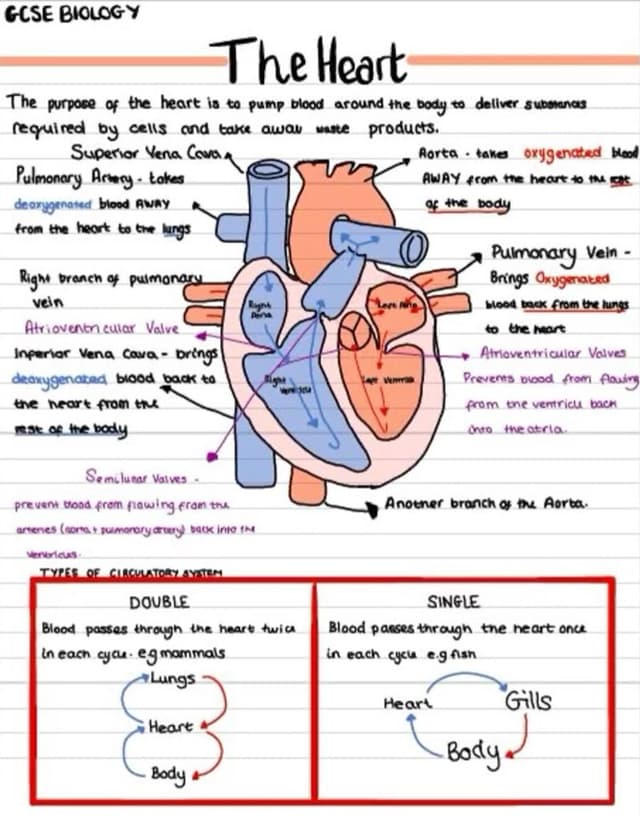 GCSE BIOLOGY
The Heart
The purpose of the heart is to pump blood around the body to deliver substances
required by cells and take away waste products.
Superior Vena Cava
Pulmonary Artery - takes
deoxygenated blood AWAY
from the heart to the lungs
Right branch of pulmonary
vein
Atrioventricular Valve
Inferior Vena Cava - brings
deoxygenated blood back to
the heart from the
rest of the body
Semilunar Valves -
prevent blood from flowing from the
arteries (aorta + pulmonary artery) back into the
ventricles.
Aorta - takes oxygenated blood
AWAY from the heart to the rest
of the body
Pulmonary Vein -
Brings Oxygenated
blood back from the lungs
to the heart
Atrioventricular Valves
Prevents blood from flowing
from the ventricle back
into the atria.
Another branch of the Aorta.
Right
Left
Right
Left Ventricle
TYPES OF CIRCULATORY SYSTEM
DOUBLE
Blood passes through the heart twice
in each cycle. eg mammals
Lungs
Heart
Body
SINGLE
Blood passes through the heart once
in each cycle e.g fish
Heart
Gills
Body